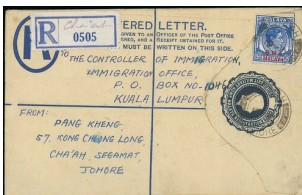 REGISTERED LETTER.
GIVEN TO AN OFFICER OF THE POST OFFICE
AND A RECEIPT OBTAINED FOR IT.
MUST BE WRITTEN ON THIS SIDE.
R
Cha'ah
0505
TO
THE CONTROLLER OF IMMIGRATION,
IMMIGRATION OFFICE,
P. O. BOX NO.
KUALA LUMPUR
FROM:
PANG KHENG
57, KONG CHEONG LONG,
CHA'AH, SEGAMAT,
JOHORE